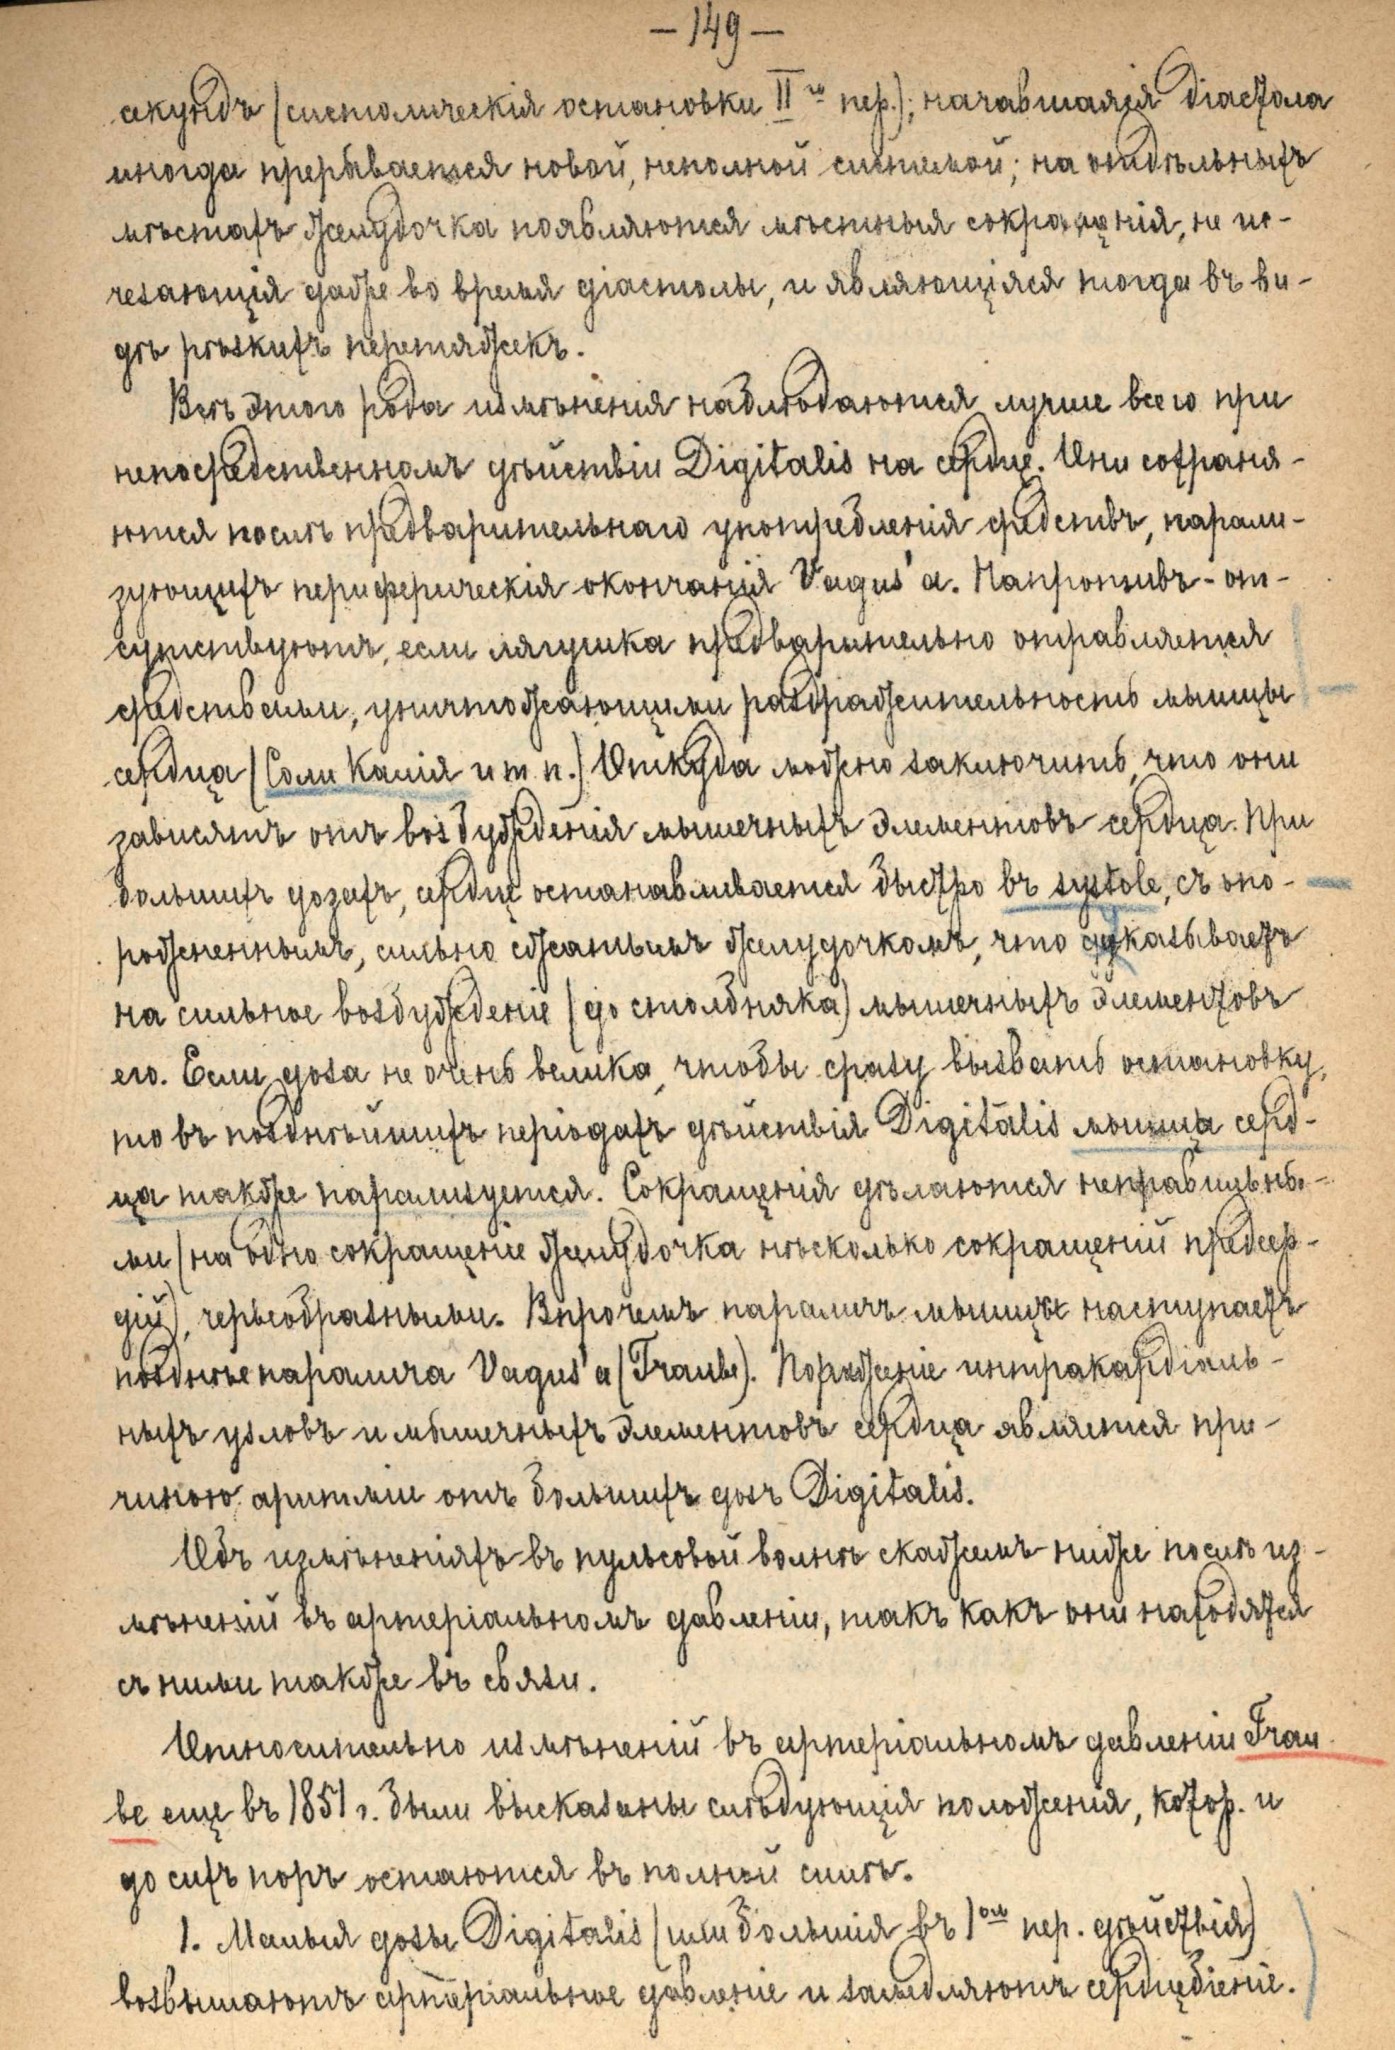 — 149 —
секундъ (систолическія остановки II го пер.); начавшаяся діастола
иногда прерывается новой, неполной систолой; на отдѣльныхъ
мѣстахъ желудочка появляются мѣстныя сокращенія, не ис-
чезающія даже во время діастолы, и являющіяся тогда въ ви-
дѣ рѣзкихъ перетяжекъ.
Всѣ этого рода измѣненія наблюдаются лучше всего при
непосредственномъ дѣйствіи Digitalis на сердце. Они сохраня-
ются послѣ предварительнаго употребленія средствъ, парали-
зующихъ периферическія окончанія Vagus'a. Напротивъ - от-
сутствуютъ, если лягушка предварительно отравляется
средствами, уничтожающими раздражительность мышцы
сердца (Соли Калія и т. п.) Откуда можно заключить, что они
зависятъ отъ возбужденія мышечныхъ элементовъ сердца. При
большихъ дозахъ, сердце останавливается быстро въ systole, съ опо-
рожненнымъ, сильно сжатымъ желудочкомъ, что указываетъ
на сильное возбужденіе (до столбняка) мышечныхъ элементовъ
его. Если доза не очень велика, чтобы сразу вызвать остановку,
то въ позднѣйшихъ періодахъ дѣйствія Digitalis мышца серд-
ца также парализуется. Сокращенія дѣлаются неправильны-
ми (на одно сокращеніе желудочка нѣсколько сокращеній предсер-
дій), червеобразными. Впрочемъ параличъ мышцы наступаетъ
позднѣе паралича Vagus'a (Traube). Пораженіе интракардіаль-
ныхъ узловъ и мышечныхъ элементовъ сердца является при-
чиною аритміи отъ большихъ дозъ Digitalis.
Объ измѣненіяхъ въ пульсовой волнѣ скажемъ ниже послѣ из-
мѣненій въ артеріальномъ давленіи, такъ какъ они находятся
съ ними также въ связи.
Относительно измѣненій въ артеріальномъ давленіи Trau
be еще въ 1851 г. были высказаны слѣдующія положенія, котор. и
до сихъ поръ остаются въ полной силѣ.
1. Малыя дозы Digitalis (или большія въ 1омъ пер. дѣйствія)
возвышаютъ артеріальное давленіе и замедляютъ сердцебіеніе.